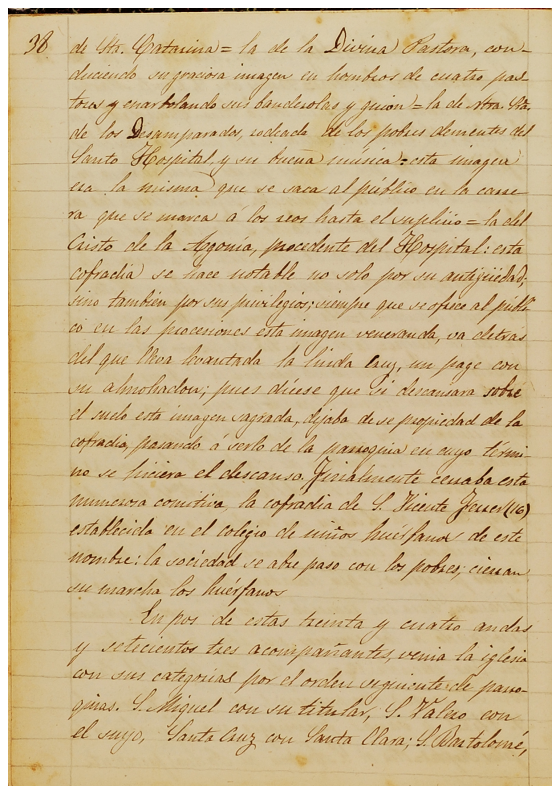 38
de Sta. Catarina = la de la Divina Pastora, con-
duciendo su graciosa imagen en hombros de cuatro pas-
tores y enarbolando sus banderolas y guion = la de Ntra. Sra.
de los Desamparados, rodeada de los pobres dementes del
Santo Hospital y su buena música = esta imagen
era la misma que se saca al público en la carre-
ra que se marca á los reos hasta el suplicio = la del
Cristo de la Agonía, procedente del Hospital: esta
cofradia se hace notable no solo por su antigüedad,
sino tambien por sus privilegios; siempre que se ofrece al públi-
co en las procesiones esta imagen veneranda, va detrás
del que lleva levantada la linda cruz, un page con
su almohadon; pues dícese que si descansara sobre
el suelo esta imagen sagrada, dejaba de se propiedad de la
cofradia, pasando á serlo de la parroquia en cuyo térmi-
no se hiciera el descanso. Finalmente cerraba esta
numerosa comitiva, la cofradia de S. Vicente Ferrer (16)
establecida en el colegio de niños huérfanos de este
nombre: la sociedad se abre paso con los pobres, cierran
su marcha los huérfanos
En pos de estas treinta y cuatro andas
y setecientos tres acompañantes, venia la iglesia
con sus categorias por el orden siguiente de parro-
quias. S. Miguel con su titular, S. Valero con
el suyo, Santa Cruz con Santa Clara; S. Bartolomé,